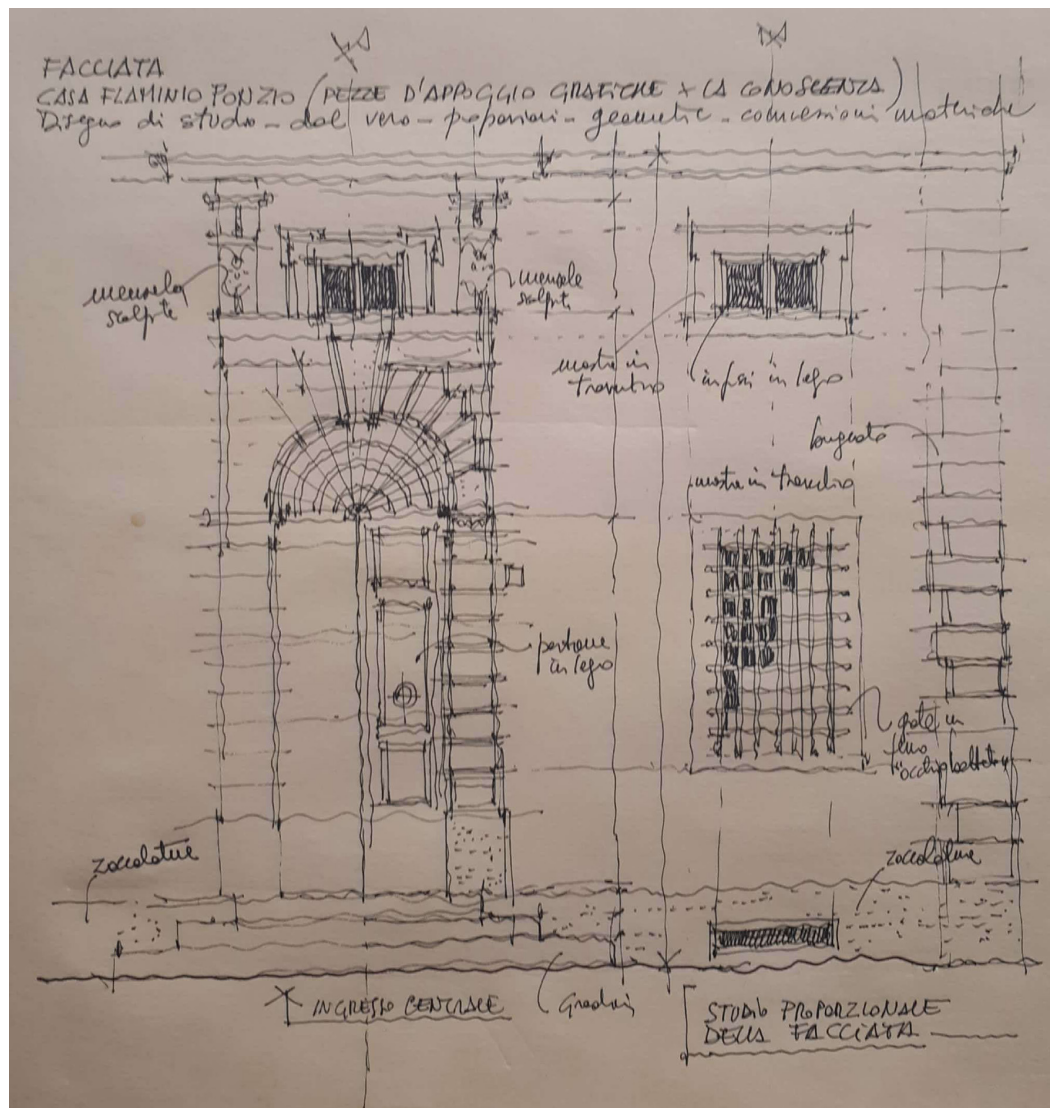 FACCIATA
CASA FLAMINIO PONZIO (PEZZE D'APPOGGIO GRAFICHE X LA CONOSCENZA)
Disegno di studio - dal vero - proporzioni - geometrie - connessioni materiche
mensola
scolpite
mensole
scolpite
mostra in
travertino
infissi in legno
bugnato
mostra in travertino
portone
in legno
grate in
ferro
"occhio
zoccolature
zoccolature
INGRESSO CENTRALE
Gradini
STUDIO PROPORZIONALE
DELLA FACCIATA